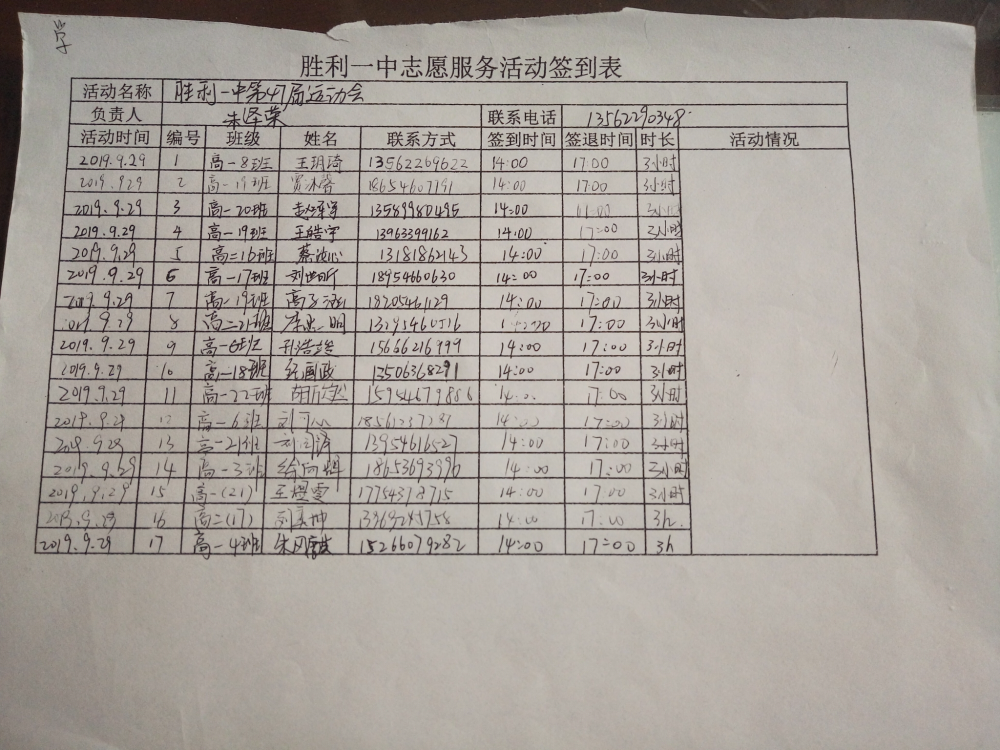 学
胜利一中志愿服务活动签到表
活动名称 胜利一中第47届运动会
负责人 朱泽荣 联系电话 13562290348
活动时间 编号 班级 姓名 联系方式 签到时间 签退时间 时长 活动情况
2019.9.29 1 高一8班 王玥琦 13562269622 14:00 17:00 3小时
2019.9.29 2 高一19班 18654607191 14:00 17:00 3小时
2019.9.29 3 高一20班 13589980495 14:00 3小时
2019.9.29 4 高一19班 王皓宇 13963399162 14:00 17:00 3小时
2019.9.29 5 高二16班 13181862143 14:00 17:00 3小时
2019.9.29 6 高一17班 刘世昕 18954660630 14:00 17:00 3小时
2019.9.29 7 高一19班 18205461129 14:00 17:00 3小时
2019.9.29 8 高二21班 17:00 3小时
2019.9.29 9 高一6班 15666216999 14:00 17:00 3小时
2019.9.29 10 高一18班 13506368291 14:00 17:00 3小时
2019.9.29 11 高一22班 15954679886 17:00 3小时
高一6班 刘可心 17:00 3小时
2019.9.29 13 高一21班 13954616527 14:00 17:00 3小时
2019.9.29 14 高一3班 18653693996 14:00 17:00 3小时
2019.9.29 15 高一(21) 17754318715 14:00 17:00 3小时
16 高二(17) 14:00 17:00 3h.
2019.9.29 17 高一4班 15266079282 14:00 17:00 3h